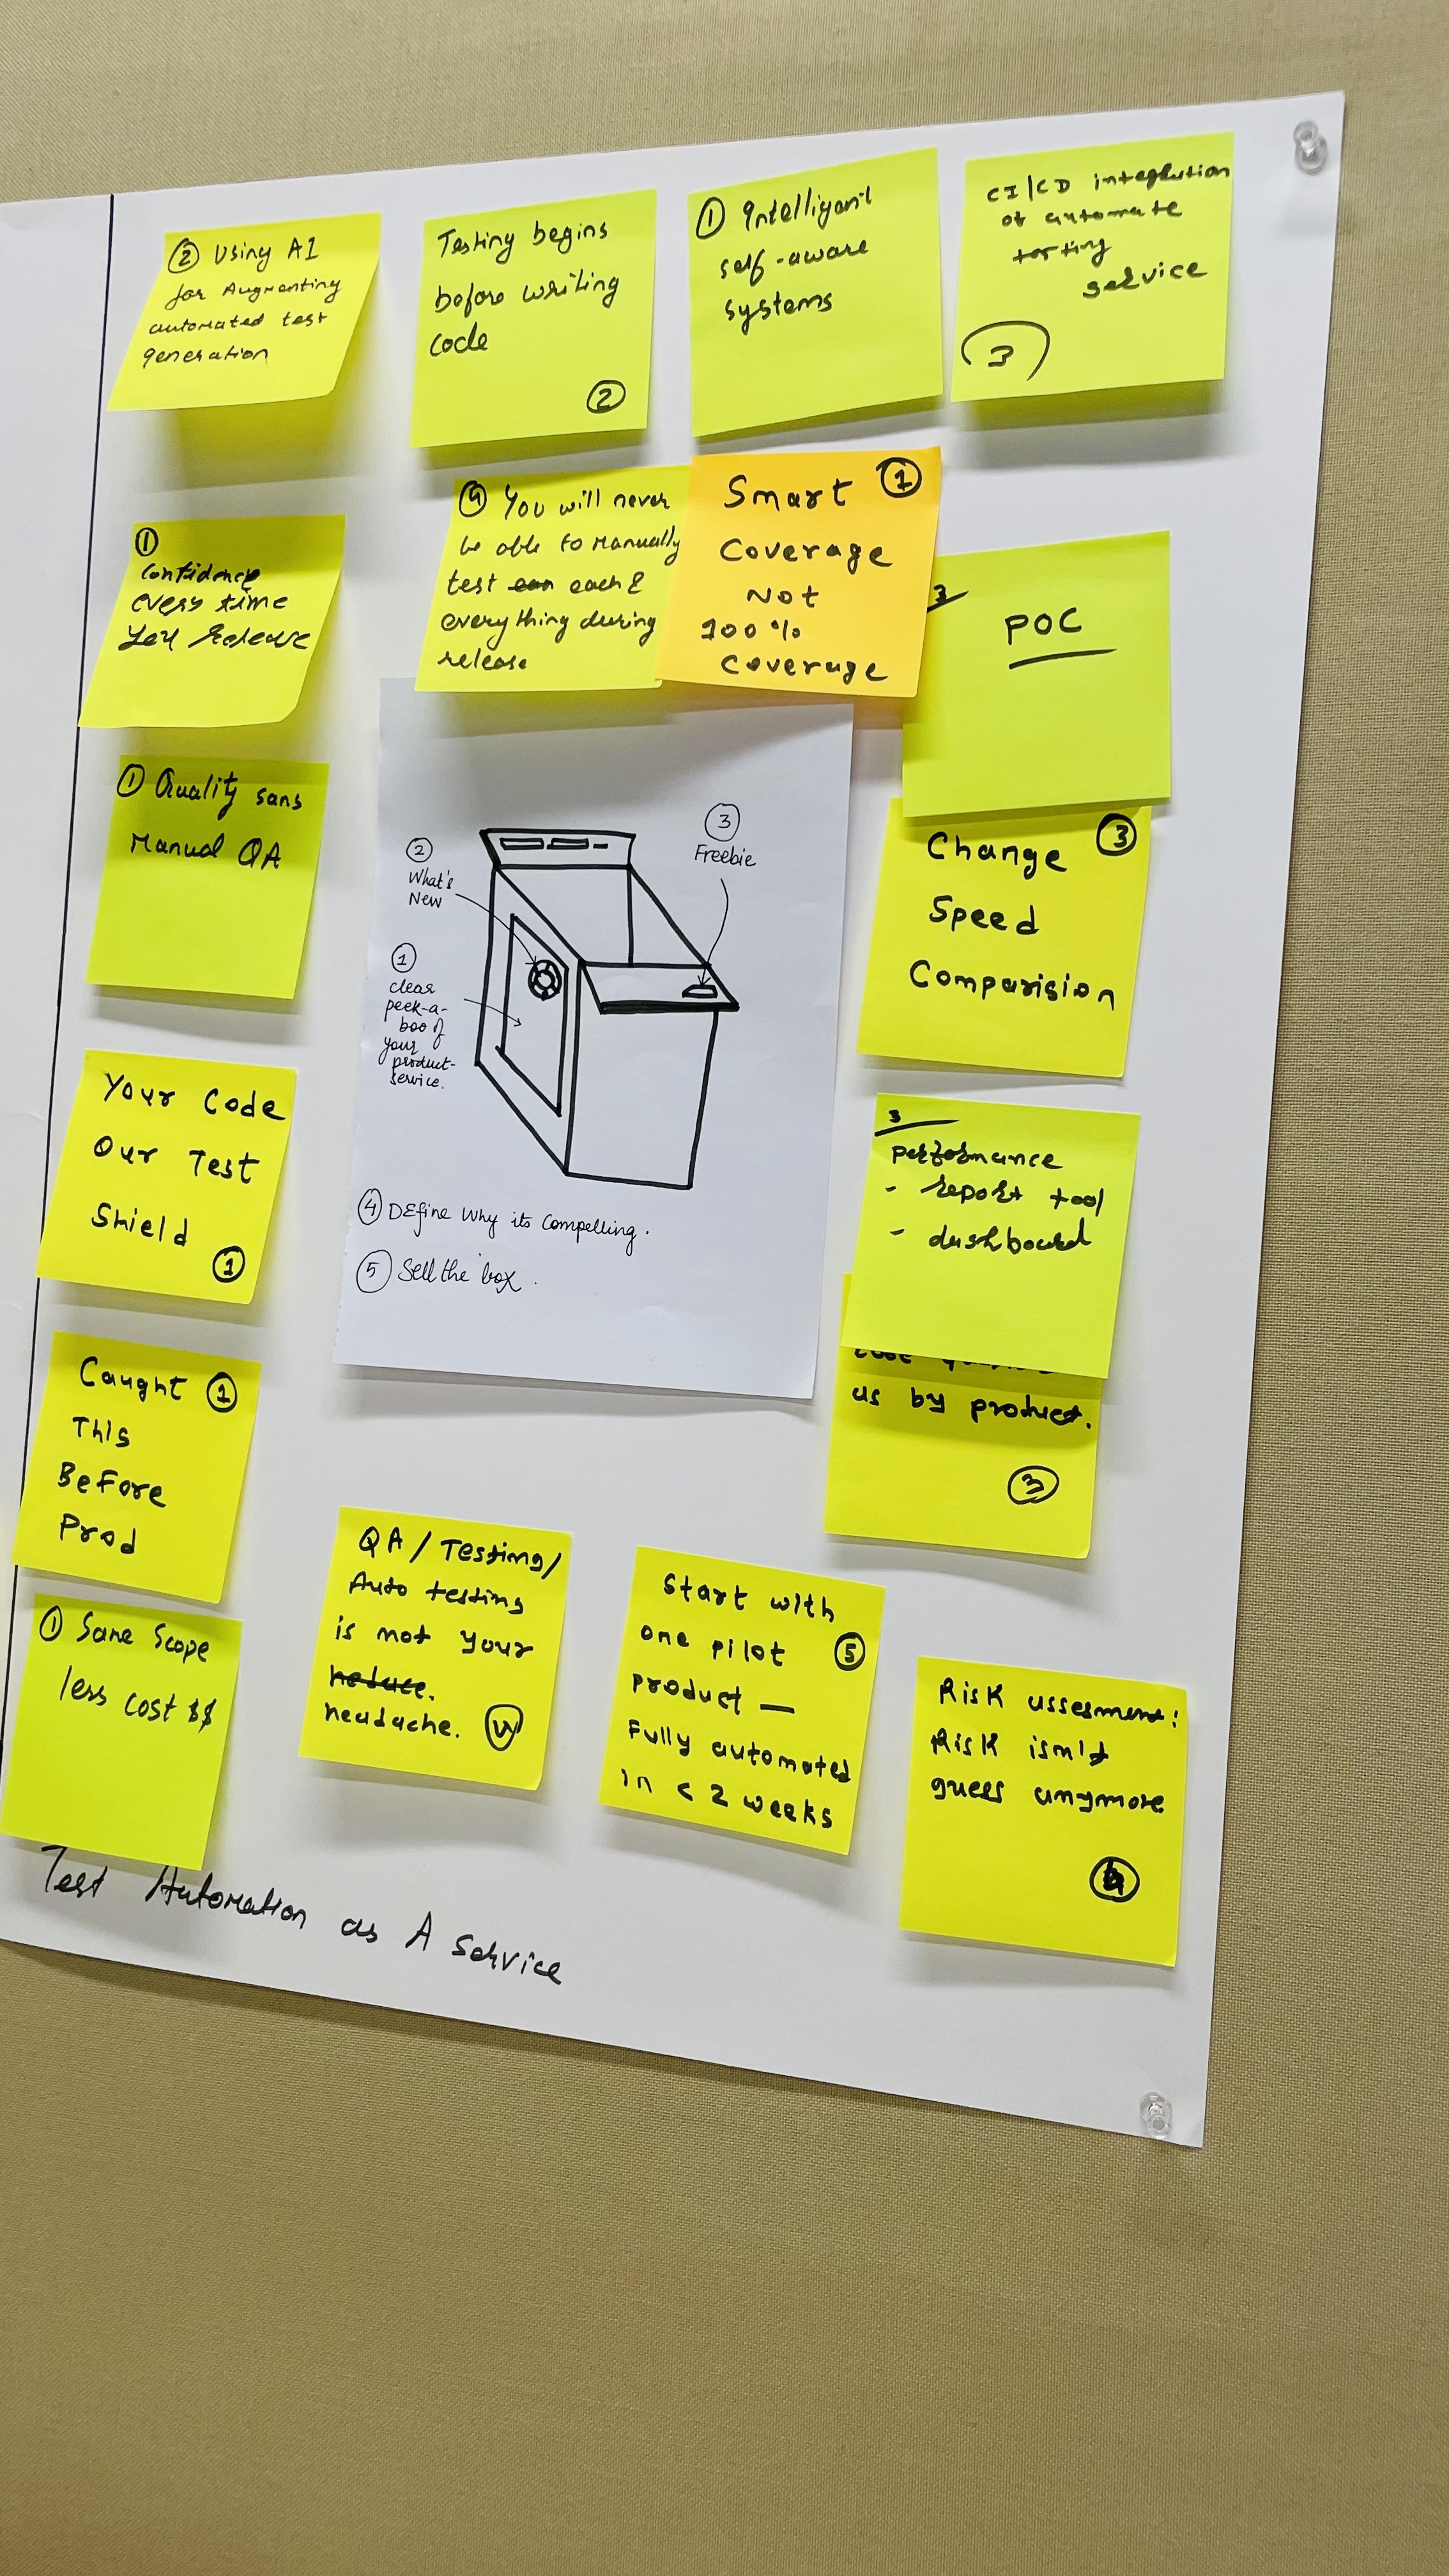 ② Using AI
for Augmenting
automated test
generation
Testing begins
before writing
code
②
① Intelligent
self-aware
systems
CI/CD integration
of automate
testing
service
3
① 
Confidence
every time
You Release
④ You will never
be able to Manually
test each &
everything during
release
Smart ①
Coverage
Not
100%
Coverage
3
POC
① Quality sans
Manual QA
②
What's
New
③
Freebie
①
clear
peek-a-
boo of
your
product-
service.
④ Define why its compelling.
⑤ Sell the box.
Change ③
Speed
Comparision
Your Code
Our Test
Shield ①
3
performance
- report tool
- dashboard
us by product.
③
Caught ①
This
Before
Prod
① Same Scope
less cost $$
QA / Testing/
Auto testing
is not your
headache.
Start with
one pilot ⑤
product —
Fully automated
in < 2 weeks
Risk assesment:
Risk isn't
guess anymore
Test Automation as A service